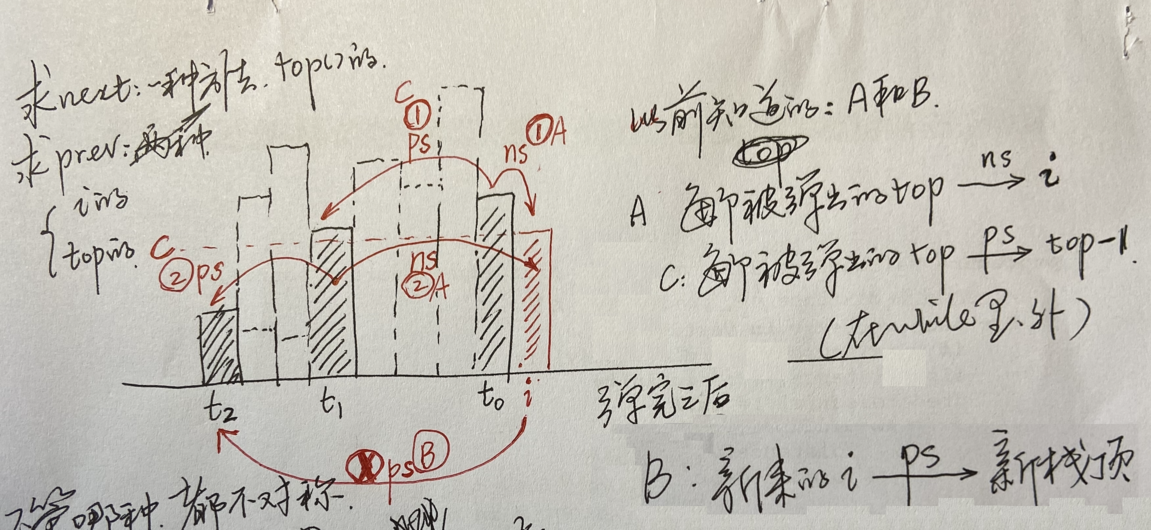 求next:一种方法. top()的.
求prev:两种
i的
top的.
C
①
ps
ns①A
C
②ps
ns
②A
t₂
t₁
t₀
i
ps B
不管哪种.都不对称.
以前知道的: A和B.
top
A 每即被弹出的top ns→ i
C: 每即被弹出的top ps→ top-1.
(在while里、外)
弹完之后
B: 新来的i ps→ 新栈顶